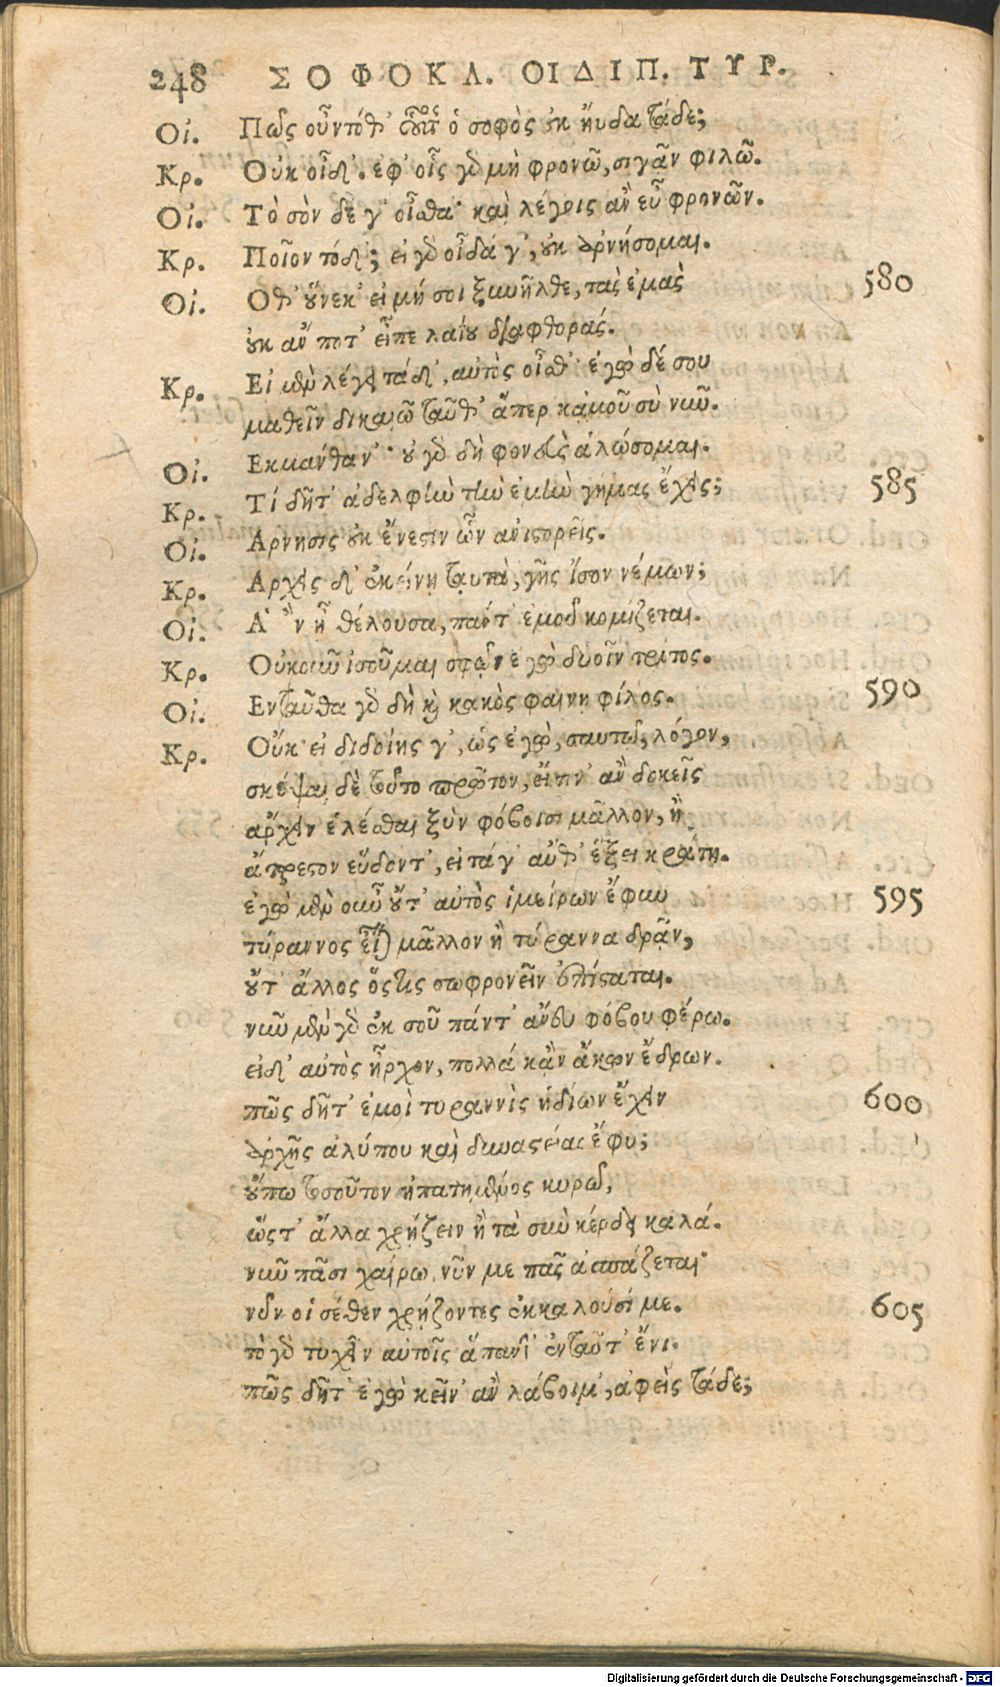 248 ΣΟΦΟΚΛ. ΟΙΔΙΠ. ΤΥΡ.
Οἰ. Πῶς οὖν τόθ' οὗτος ὁ σοφὸς οὐκ ηὔδα τάδε;
Κρ. Οὐκ οἶδ'. ἐφ' οἷς γὰρ μὴ φρονῶ, σιγᾶν φιλῶ.
Οἰ. Τὸ σὸν δέ γ' οἶσθα· καὶ λέγοις ἂν εὖ φρονῶν.
Κρ. Ποῖον τόδ'; εἰ γὰρ οἶδά γ', οὐκ ἀρνήσομαι.
Οἰ. Οθ' οὕνεκ' εἰ μή σοι ξυνῆλθε, τὰς ἐμὰς 580
οὐκ ἄν ποτ' εἶπε λαΐου διαφθοράς.
Κρ. Εἰ μὲν λέγει τάδ', αὐτὸς οἶσθ'· ἐγὼ δέ σου
μαθεῖν δικαιῶ ταῦθ' ἅπερ κἀμοῦ σὺ νῦν.
Οἰ. Εκμάνθαν'· οὐ γὰρ δὴ φονεὺς ἁλώσομαι.
Κρ. Τί δῆτ' ἀδελφὴν τὴν ἐμὴν γήμας ἔχεις; 585
Οἰ. Αρνησις οὐκ ἔνεστιν ὧν ἀνιστορεῖς.
Κρ. Αρχεις δ' ἐκείνῃ ταυτὰ, γῆς ἴσον νέμων;
Οἰ. Α' ἂν ᾖ θέλουσα, πάντ' ἐμοῦ κομίζεται.
Κρ. Οὐκοῦν ἰσοῦμαι σφῷν ἐγὼ δυοῖν τρίτος.
Οἰ. Ενταῦθα γὰρ δὴ καὶ κακὸς φαίνῃ φίλος. 590
Κρ. Οὔκ· εἰ διδοίης γ', ὡς ἐγὼ, σαυτῷ λόγον,
σκέψαι δὲ τοῦτο πρῶτον, εἴ τιν' ἂν δοκεῖς
ἄρχειν ἑλέσθαι ξὺν φόβοισι μᾶλλον, ἢ
ἄτρεστον εὕδοντ', εἰ τά γ' αὔθ' ἕξει κράτη.
ἐγὼ μὲν οὖν οὔτ' αὐτὸς ἱμείρων ἔφυν 595
τύραννος εἶναι μᾶλλον ἢ τύραννα δρᾶν,
οὔτ' ἄλλος ὅστις σωφρονεῖν ἐπίσταται.
νῦν μὲν γὰρ ἐκ σοῦ πάντ' ἄνευ φόβου φέρω.
εἰ δ' αὐτὸς ἦρχον, πολλὰ κἂν ἄκων ἔδρων.
πῶς δῆτ' ἐμοὶ τυραννὶς ἡδίων ἔχειν 600
ἀρχῆς ἀλύπου καὶ δυναστείας ἔφυ;
οὔπω τοσοῦτον ἠπατημένος κυρῶ,
ὥστ' ἄλλα χρῄζειν ἢ τὰ σὺν κέρδει καλά.
νῦν πᾶσι χαίρω, νῦν με πᾶς ἀσπάζεται·
νῦν οἱ σέθεν χρῄζοντες ἐκκαλοῦσί με. 605
τὸ γὰρ τυχεῖν αὐτοῖς ἅπαντ' ἐνταῦτ' ἔνι.
πῶς δῆτ' ἐγὼ κεῖν' ἂν λάβοιμ', ἀφεὶς τάδε;
Digitalisierung gefördert durch die Deutsche Forschungsgemeinschaft - DFG